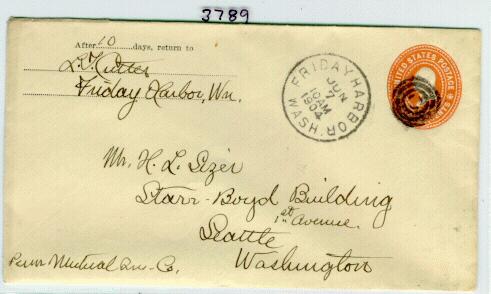 3789
After 10 days, return to
Friday Harbor, Wn.
FRIDAY HARBOR
JUN
7
10AM
1904
WASH.
UNITED STATES POSTAGE
Mr. H. L. Sizer
Starr-Boyd Building
1st Avenue.
Seattle
Washington
Penn Mutual Ins. Co.